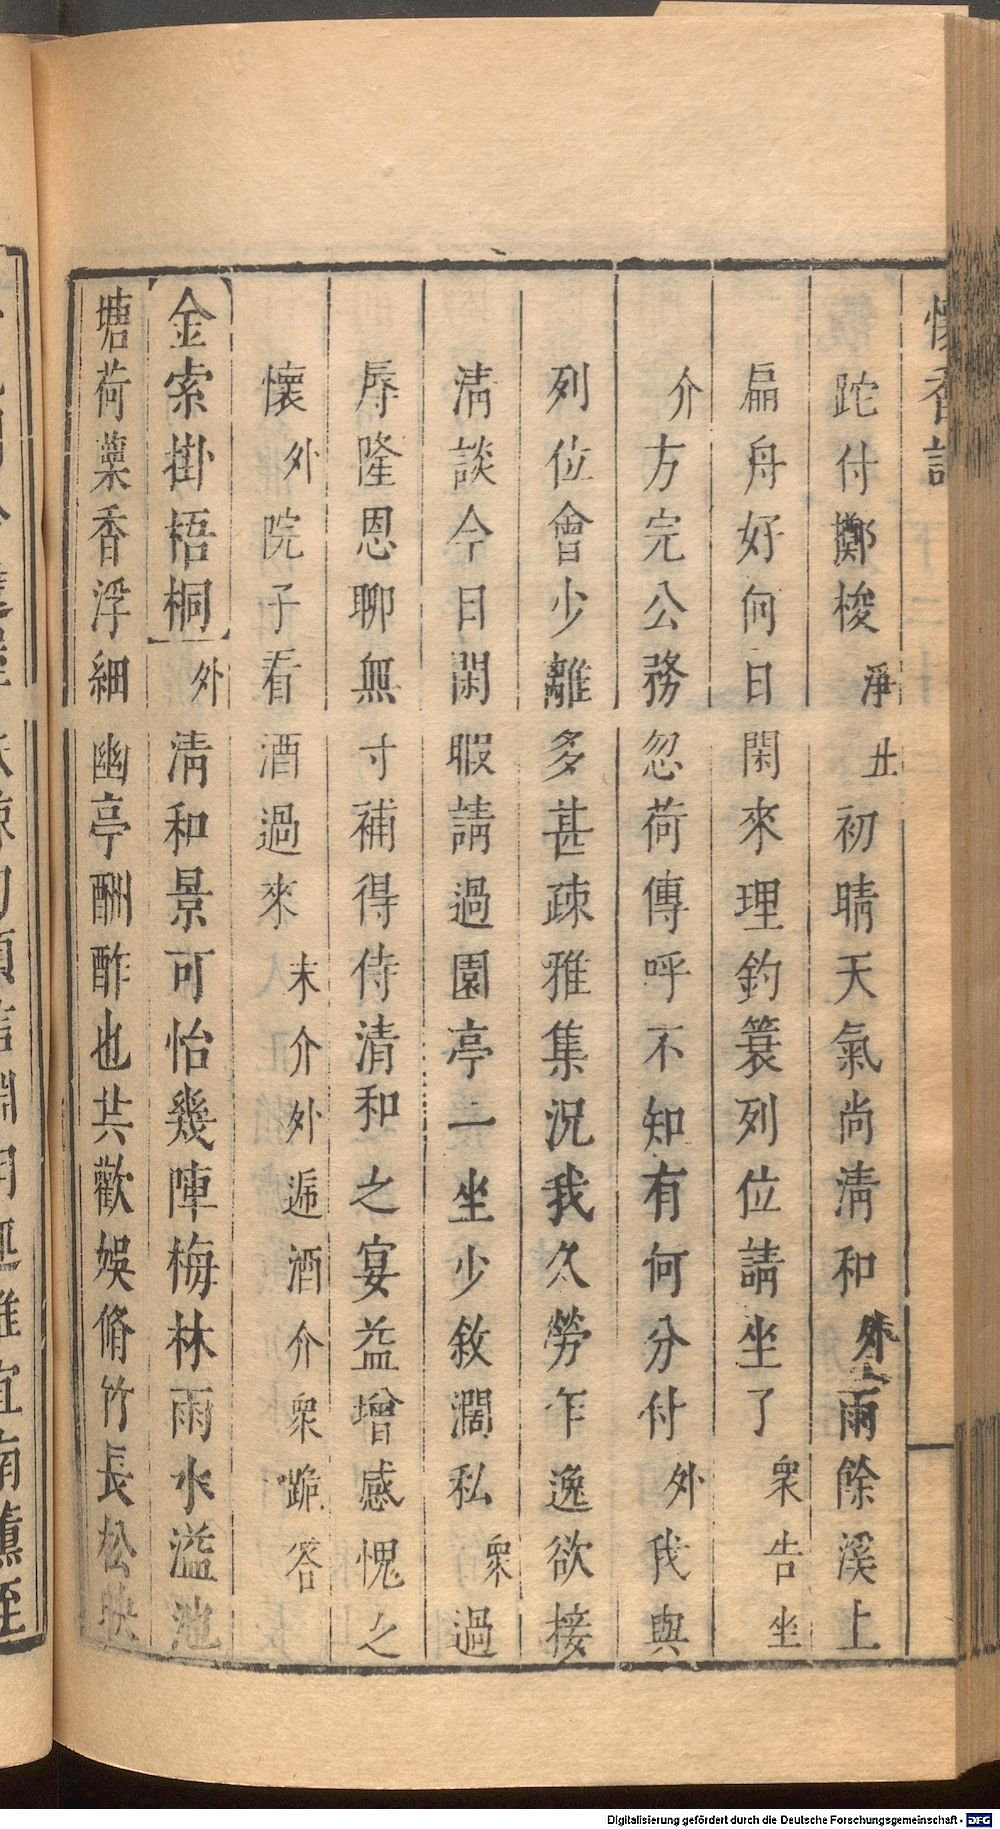 懷香記
跎付擲梭淨丑初晴天氣尚清和外末雨餘溪上
扁舟好何日閑來理釣簑列位請坐了衆告坐
介方完公務忽荷傳呼不知有何分付外我與
列位會少離多甚疎雅集況我久勞乍逸欲接
清談今日閑暇請過園亭一坐少敘濶私衆過
辱隆恩聊無寸補得侍清和之宴益增感愧之
懷外院子看酒過來末介外遞酒介衆跪答
金索掛梧桐外清和景可怡幾陣梅林雨水溢池
塘荷葉香浮細幽亭酬酢也共歡娛脩竹長松映
Digitalisierung gefördert durch die Deutsche Forschungsgemeinschaft - DFG